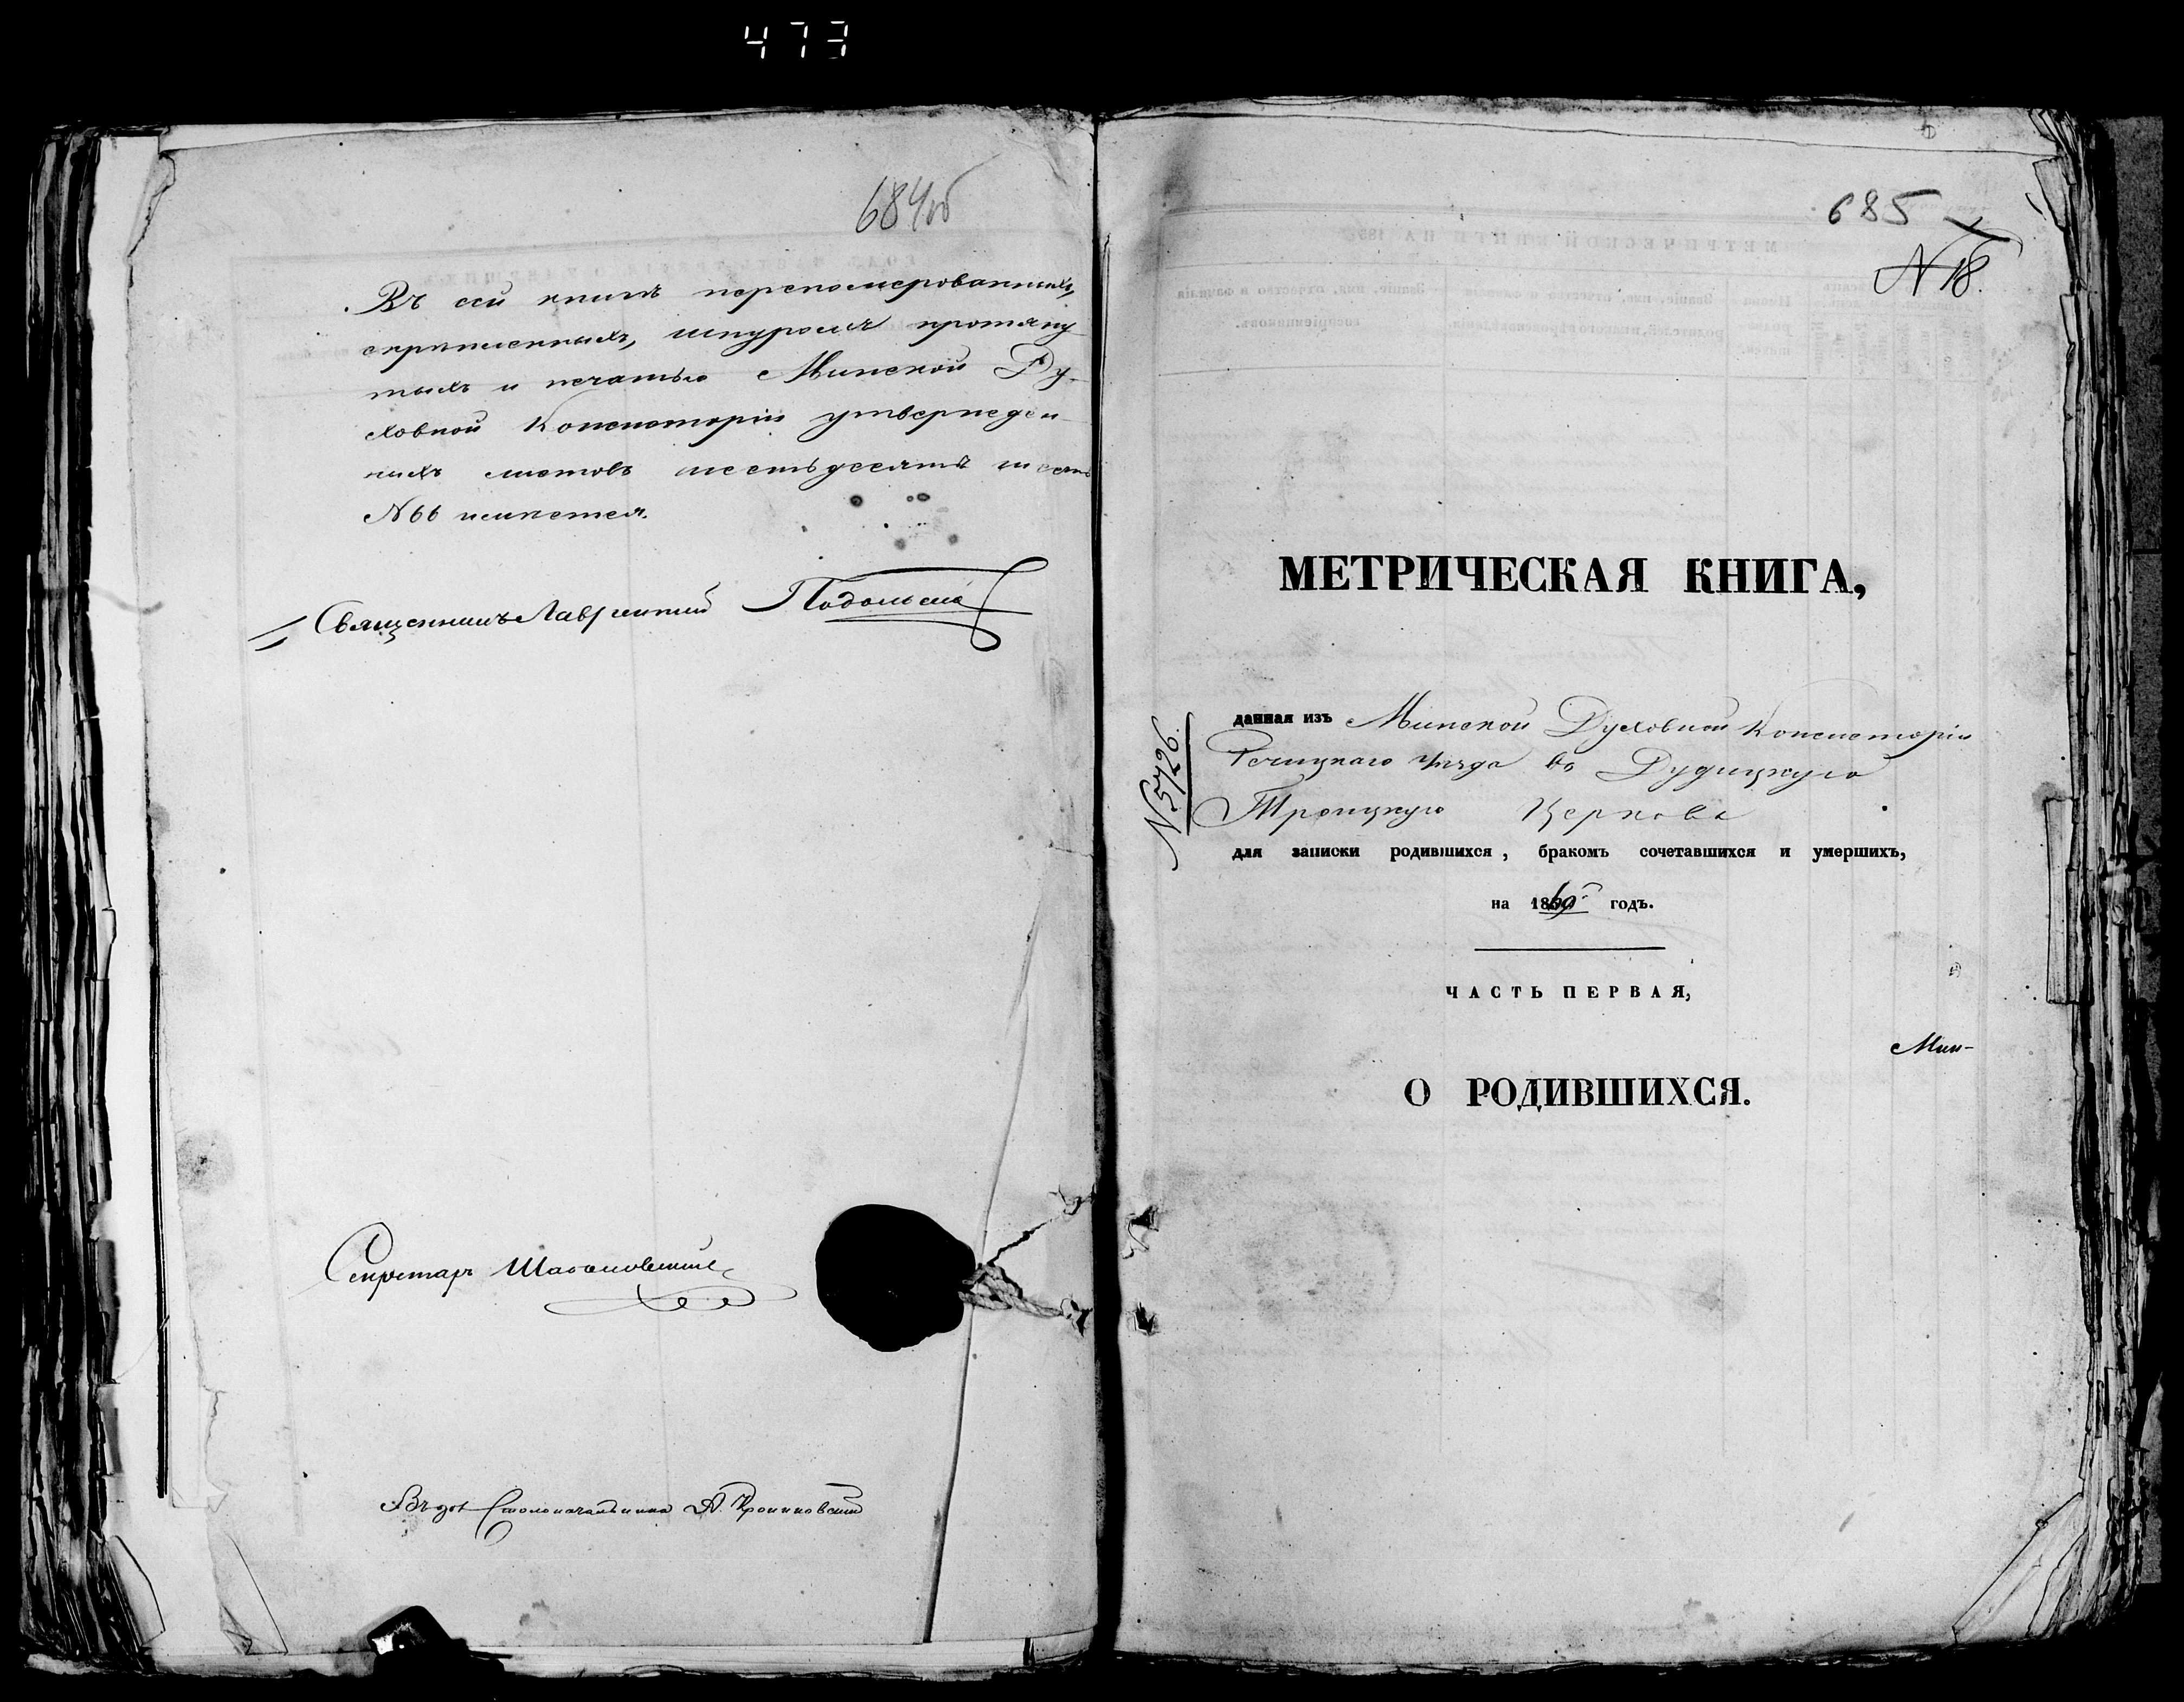 473
684об
Въ сей книгѣ перенумерованныхъ,
скрѣпленныхъ, шнуромъ протяну
тыхъ и печатью Минской Ду-
ховной Консисторіи утвержден
ныхъ листовъ шестьдесятъ шесть
№ 66 имѣется.
Священникъ Лаврентій
Секретарь
Столоначальника А.
685
№ 18.
МЕТРИЧЕСКАЯ КНИГА,
№ 5726.
данная изъ Минской Духовной Консисторіи
Речицкаго уѣзда въ Дудицкую
Троицкую Церковь
для записки родившихся, бракомъ сочетавшихся и умершихъ,
на 18 годъ.
ЧАСТЬ ПЕРВАЯ,
Мин-
О РОДИВШИХСЯ.